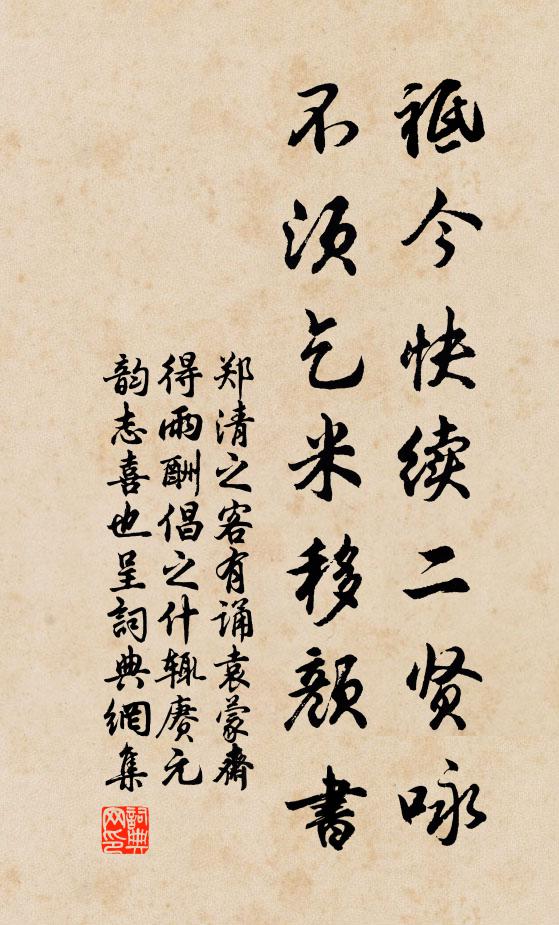 祗今快续二贤咏
不须乞米移颜书
郑清之客有诵袁蒙斋
得雨酬倡之什辄赓元
韵志喜也呈詞典網集
詞典
网印